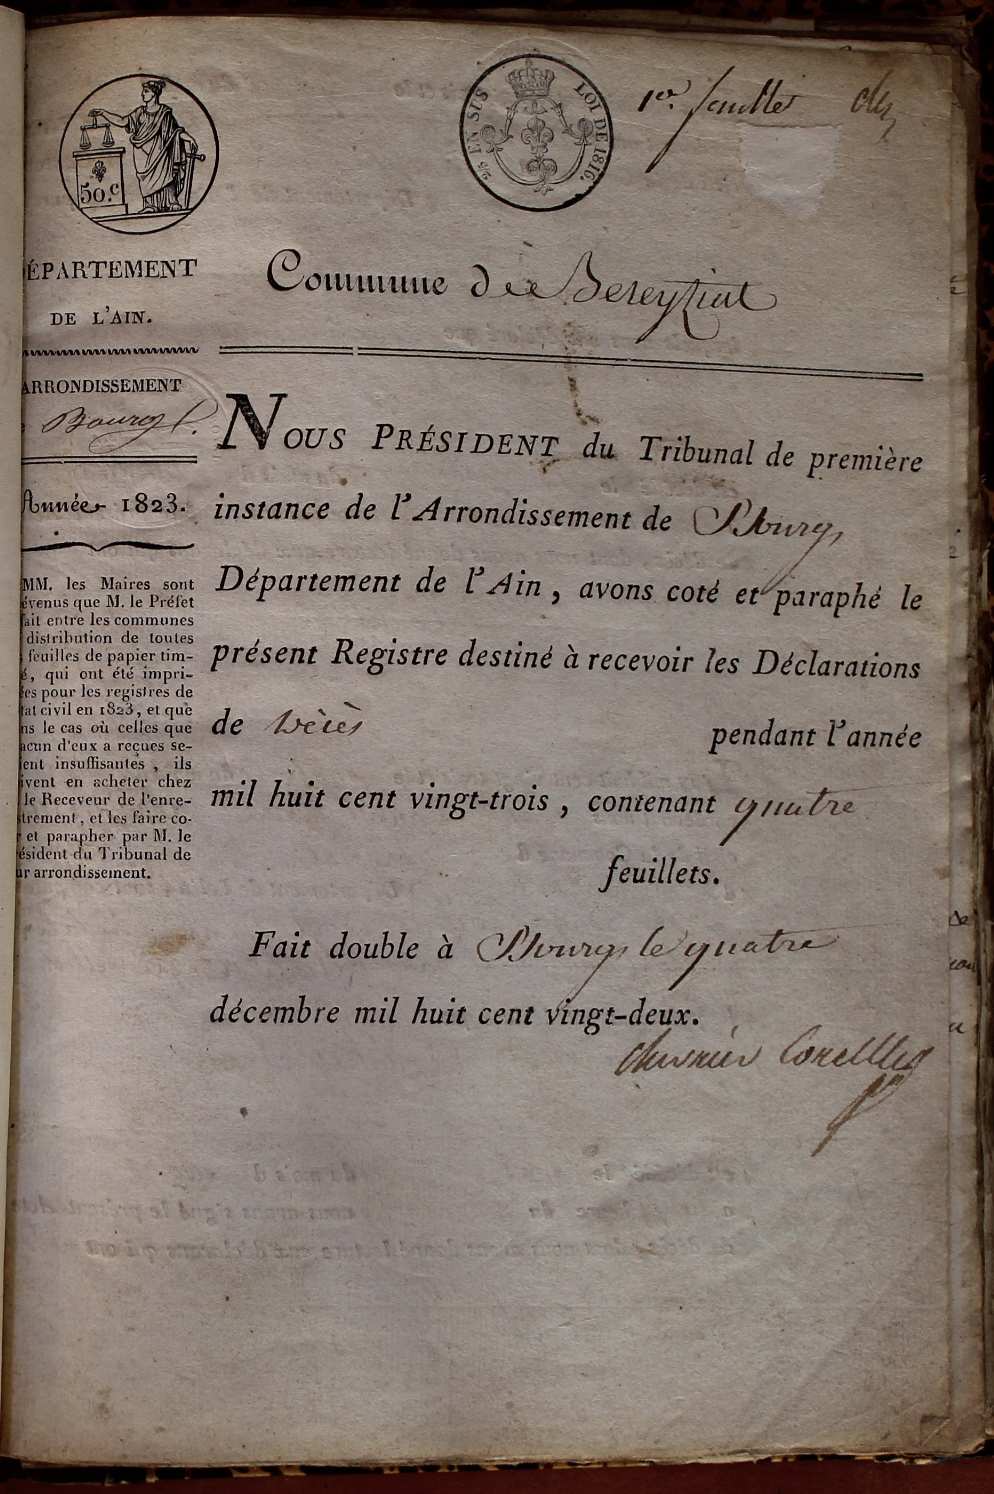 50.c
2/5 EN SUS LOI DE 1816.
1er. feuillet
ÉPARTEMENT
DE L'AIN.
Commune de Bereyziat
ARRONDISSEMENT
Bourg
Année 1823.
MM. les Maires sont
évenus que M. le Préfet
ait entre les communes
distribution de toutes
feuilles de papier tim-
é, qui ont été impri-
es pour les registres de
tat civil en 1823, et que
ns le cas où celles que
acun d'eux a reçues se-
ent insuffisantes, ils
ivent en acheter chez
le Receveur de l'enre-
trement, et les faire co-
r et parapher par M. le
ésident du Tribunal de
ur arrondissement.
NOUS PRÉSIDENT du Tribunal de première
instance de l'Arrondissement de Bourg
Département de l'Ain, avons coté et paraphé le
présent Registre destiné à recevoir les Déclarations
de Décès pendant l'année
mil huit cent vingt-trois, contenant quatre
feuillets.
Fait double à Bourg le quatre
décembre mil huit cent vingt-deux.